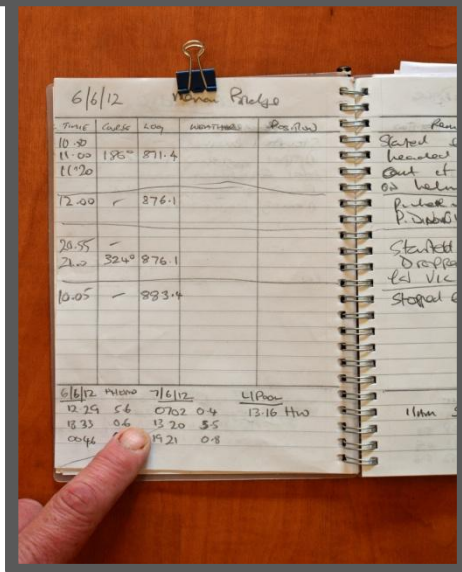 6/6/12 Menai Bridge
TIME COURSE LOG WEATHER POSITION
10.50
11.00 186° 871.4
11.20
12.00 - 876.1
20.55 -
324° 876.1
10.05 - 883.4
6/6/12 7/6/12 L/Pool
12.29 5.6 0702 0.4 13.16 HW
18.33 0.6 13 20 5.5
0046 19 21 0.8
Started
headed
out of
on helm
Started
Dropped
Stopped